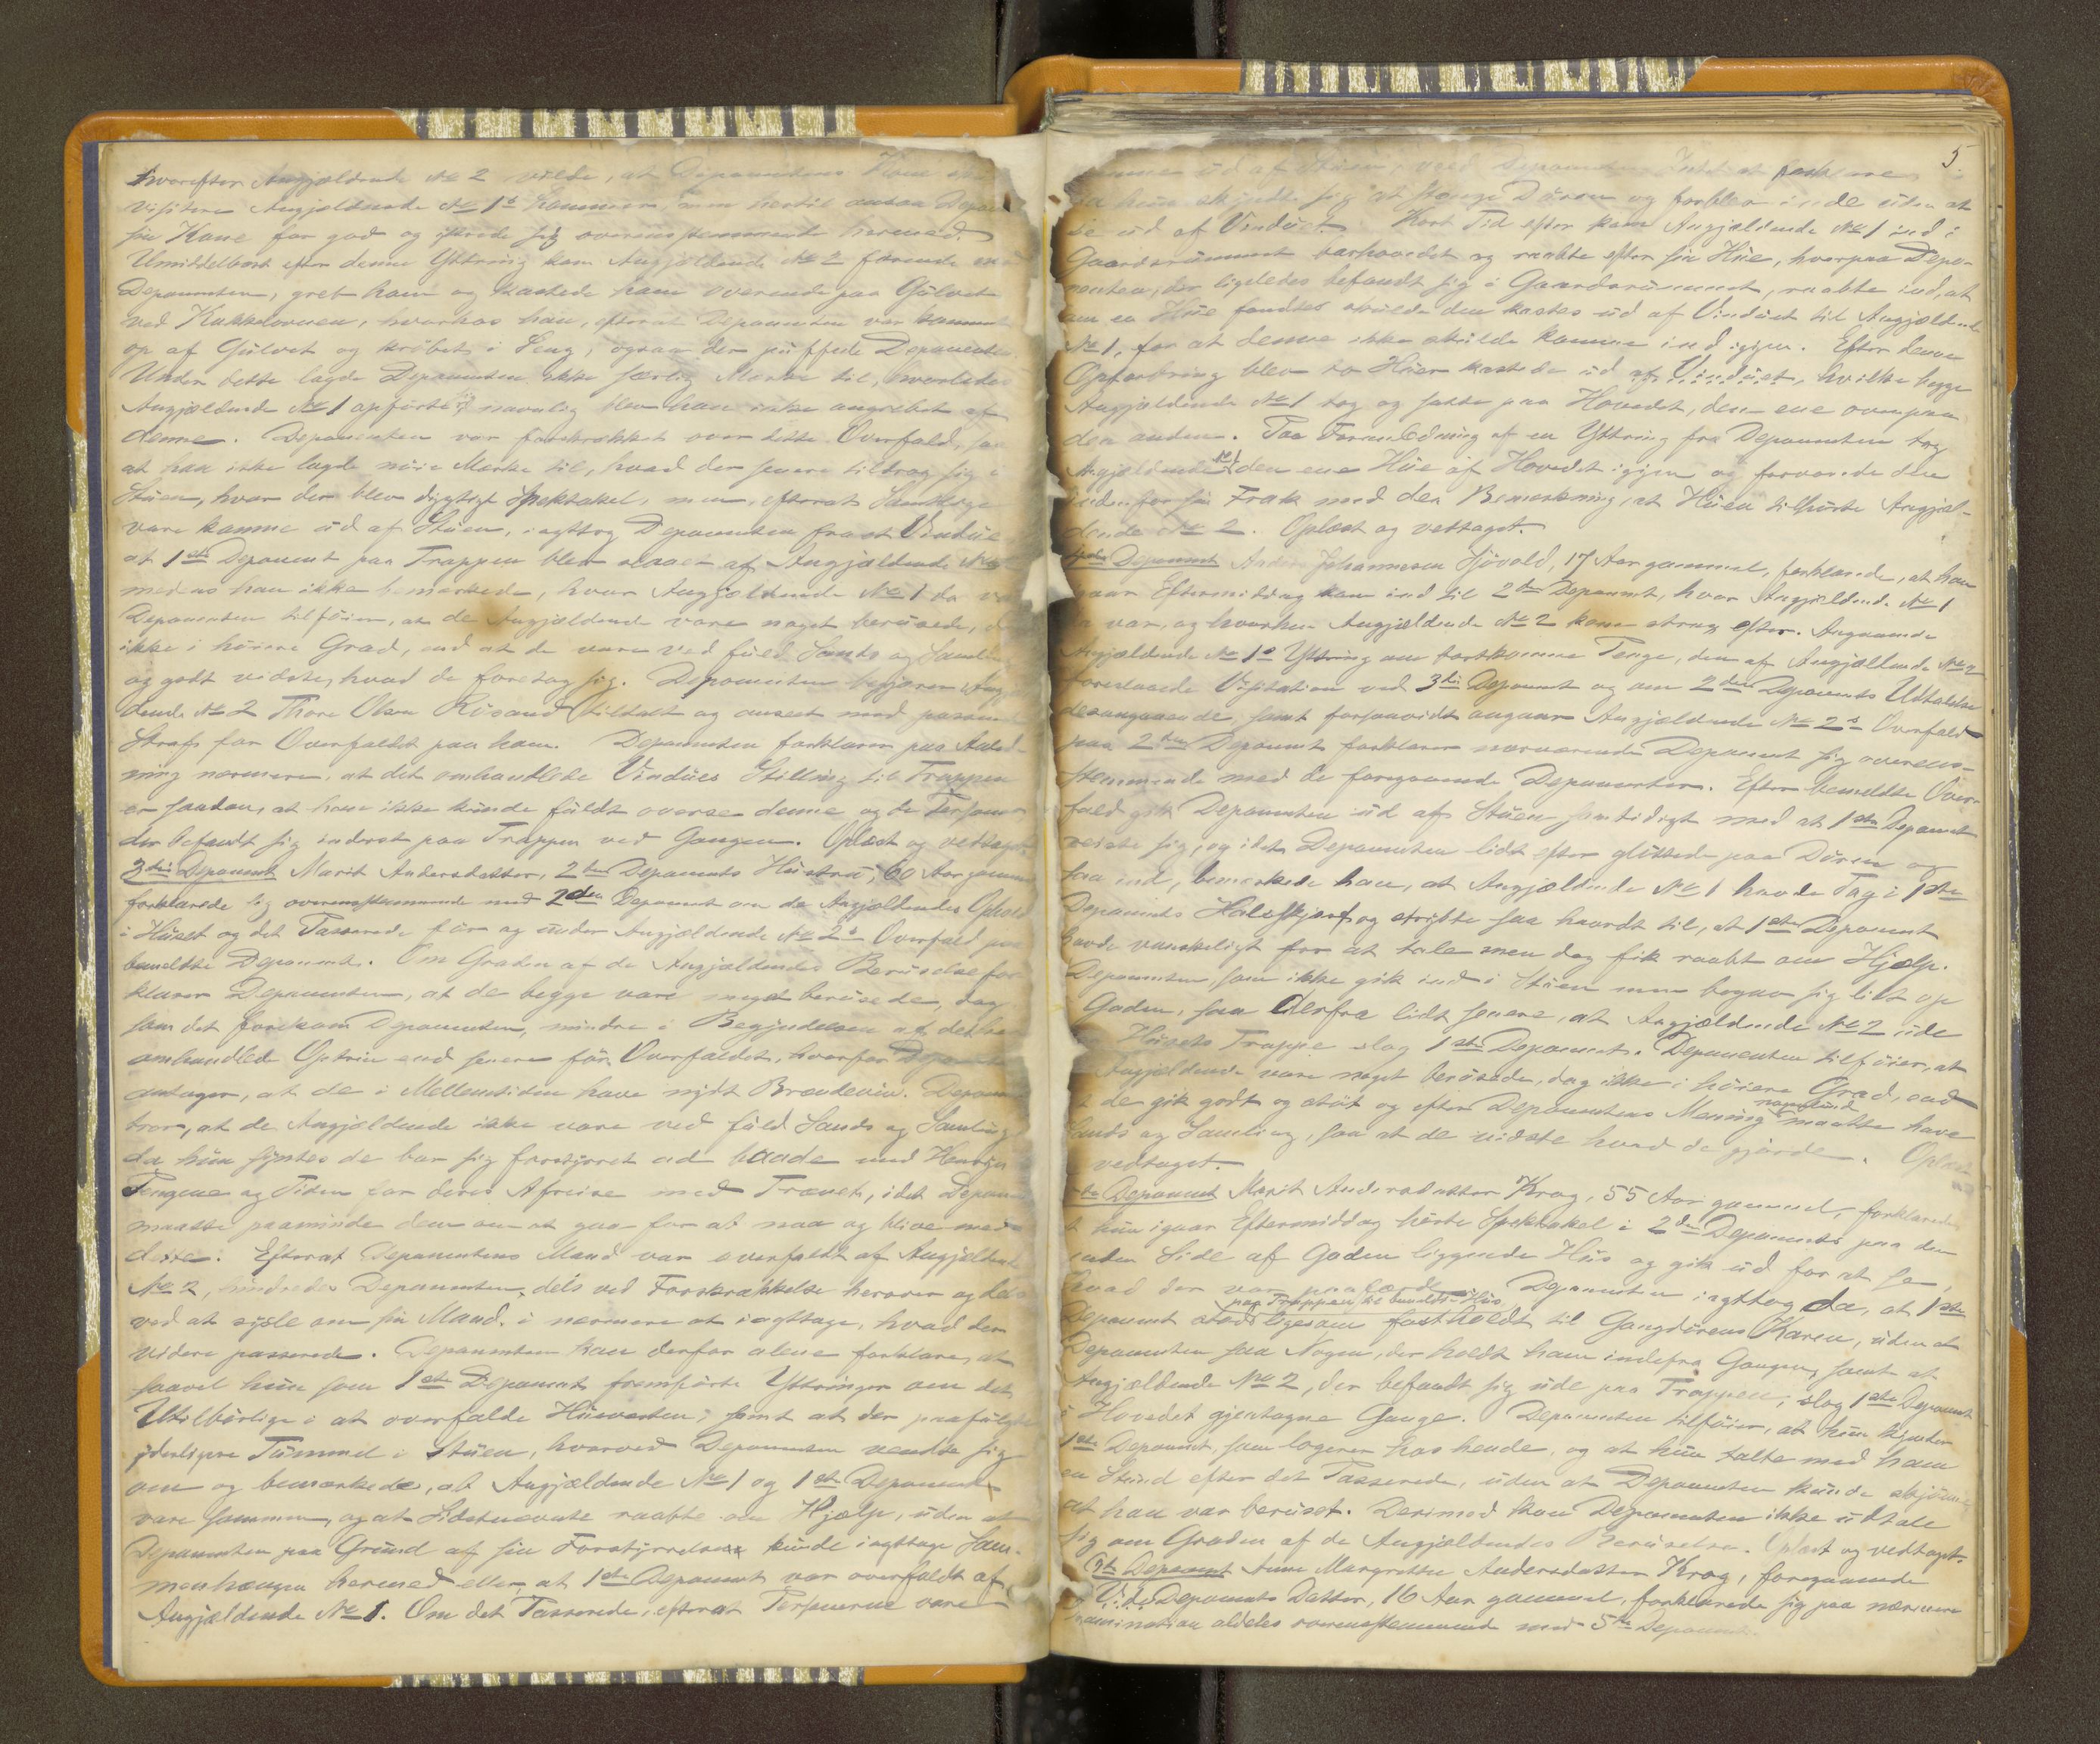 hvorefter Angjældende No 2 vilde, at Deponentens Kone
visitere Angjældende No 1s Lommer, men hertil ansaa Depo
sin Kone for god og yttrede sig overensstemmende hermed.
Umiddelbart efter denne Yttring kom Angjældende No 2 farende
Deponenten, greb ham og kastede ham overende paa Gulvet
ved Kakkelovnen, hvorhos han, efterat Deponenten var kommet
op af Gulvet og krøbet i Seng, ogsaa der puffede Deponenten.
Under dette lagde Deponenten ikke særlig Mærke til, hvorledes
Angjældende No 1 opførte sig navnlig blev han ikke angrebet af
denne. Deponenten var forskrækket over dette Overfald, saa
at han ikke lagde nøie Mærke til, hvad der senere tildrog sig i
Stuen, hvor der blev dygtigt Spektakel, men, efterat Samtlige
vare komne ud af Stuen, iagttog Deponenten fra et Vindue
at 1ste Deponent paa Trappen blev slaaet af Angjældende No
medens han ikke bemærkede, hvor Angjældende No 1 da va
Deponenten tilføier, at de Angjældende vare noget berusede, d
ikke i høiere Grad, end at de vare ved fuld Sands og Samling
og godt vidste, hvad de foretog sig. Deponenten begjærer Angjæl
dende No 2 Thore Olsen Risand tiltalt og anseet med passende
Straf for Overfaldet paa ham. Deponenten forklarer paa Anled-
ning nærmere, at det omhandlede Vindues Stilling til Trappen
er saadan, at han ikke kunde fuldt overse denne og de Personer
der befandt sig inderst paa Trappen ved Gangen. Oplæst og vedtaget.
3die Deponent Marit Andersdatter, 2den Deponents Hustru, 60 Aar gammel
forklarede sig overensstemmende med 2den Deponent om de Angjældendes Ophold
i Huset og det Passerede før og under Angjældende No 2s Overfald paa
bemeldte Deponent. Om Graden af de Angjældendes Beruselse for
klarer Deponenten, at de begge vare meget berusede, dog
som det forekom Deponenten, mindre i Begyndelsen af det her
omhandlede Optrin end senere før Overfaldet, hvorfor Deponenten
antager, at de i Mellemtiden have nydt Brændeviin. Deponenten
tror, at de Angjældende ikke vare ved fuld Sands og Samling
da hun syntes de bar sig forstyrret ad baade med Hensyn
Pengene og Tiden for deres Afreise med Trænet, idet Deponenten
maatte paaminde dem om at gaa for at naa og blive med
dette. Efterat Deponentens Mand var overfaldt af Angjældende
No 2, hindredes Deponenten, dels ved Forskrækkelse herover og dels
ved at sysle om sin Mand, i nærmere at iagttage, hvad der
videre passerede. Deponenten kan derfor alene forklare, at
saavel hun som 1ste Deponent fremførte Yttringer om det
Utilbørlige i at overfalde Husverten, samt at der paafulgte
yderligere Tummel i Stuen, hvorved Deponenten vendte sig
om og bemærkede, at Angjældende No 1 og 1ste Deponent
vare sammen, og at Sidstnævnte raabte om Hjælp, uden at
Deponenten paa Grund af sin Forstyrrelse kunde iagttage Sam-
menhængen hermed eller, at 1ste Deponent var overfaldt af
Angjældende No 1. Om det Passerede, efterat Personerne vare
5.
ud af Stuen, ved Deponenten Intet at forklare
da hun skyndte sig at stænge Døren og forblev inde uden at
se ud af Vinduet. Kort Tid efter kom Angjældende No 1 ind i
Gaardsrummet barhovedet og raabte efter sin Hue, hvorpaa Depo-
nenten, der ligeledes befandt sig i Gaardsrummet, raabte ind, at
om en Hue fandtes skulde den kastes ud af Vinduet til Angjældende
No 1, for at denne ikke skulde komme ind igjen. Efter denne
Opfordring blev to Huer kastede ud af Vinduet, hvilke begge
Angjældende No 1 tog og satte paa Hovedet, den ene ovenpaa
den anden. Paa Foranledning af en Yttring fra Deponenten tog
Angjældende No 1 den ene Hue af Hovedet igjen og forvarede den
indenfor sin Frak med den Bemærkning, at Huen tilhørte Angjæl-
dende No 2. Oplæst og vedtaget.
4de Deponent Anders Johannesen Hjøvold, 17 Aar gammel, forklarede, at han
igaar Eftermiddag kom ind til 2den Deponent, hvor Angjældende No 1
da var, og hvorhen Angjældende No 2 kom strax efter. Angaaende
Angjældende No 1s Yttring om bortkomne Penge, den af Angjældende No 2
foreslaaede Visitation ved 3die Deponent og om 2den Deponents Udtalelse
desangaaende, samt forsaavidt angaar Angjældende No 2s Overfald
paa 2den Deponent forklarer nærværende Deponent sig overens-
stemmende med de foregaaende Deponenter. Efter bemeldte Over-
fald gik Deponenten ud af Stuen samtidigt med at 1ste Deponent
reiste sig, og idet Deponenten lidt efter gløttede paa Døren og
saa ind, bemærkede han, at Angjældende No 1 havde Tag i 1ste
Deponents Halsskjærf og strybte saa haardt til, at 1ste Deponent
havde vanskeligt for at tale men dog fik raabt om Hjælp.
Deponenten, som ikke gik ind i Stuen men begav sig lidt op
Gaden, saa derfra lidt senere, at Angjældende No 2 ude
Husets Trappe slog 1ste Deponent. Deponenten tilføier, at
Angjældende vare noget berusede, dog ikke i høiere Grad, end
at de gik godt og støt og efter Deponentens Mening maatte have
Sands og Samling, saa at de vidste hvad de gjorde. Oplæst
vedtaget.
5te Deponent Marit Andersdatter Krog, 55 Aar gammel, forklarede
at hun igaar Eftermiddag hørte Spektakel i 2den Deponents paa den
anden Side af Gaden liggende Hus og gik ud for at se,
hvad der var paafærde. Deponenten iagttog da, at 1ste
paa Trappen til bemeldte Hus
Deponent stod ligesom fastholdt til Gangdørens Karm, uden at
Deponenten saa Nogen, der holdt ham indefra Gangen, samt at
Angjældende No 2, der befandt sig ude paa Trappen, slog 1ste Deponent
i Hovedet gjentagne Gange. Deponenten tilføier, at hun kjender
1ste Deponent, som logerer hos hende, og at hun talte med ham
en Stund efter det Passerede, uden at Deponenten kunde skjønne
at han var beruset. Derimod kan Deponenten ikke udtale
sig om Graden af de Angjældendes Beruselse. Oplæst og vedtaget.
6te Deponent Anne Margrethe Andersdatter Krog, foregaaende
Deponents Datter, 16 Aar gammel, forklarede sig paa nærmere
Examination aldeles overensstemmende med 5te Deponent